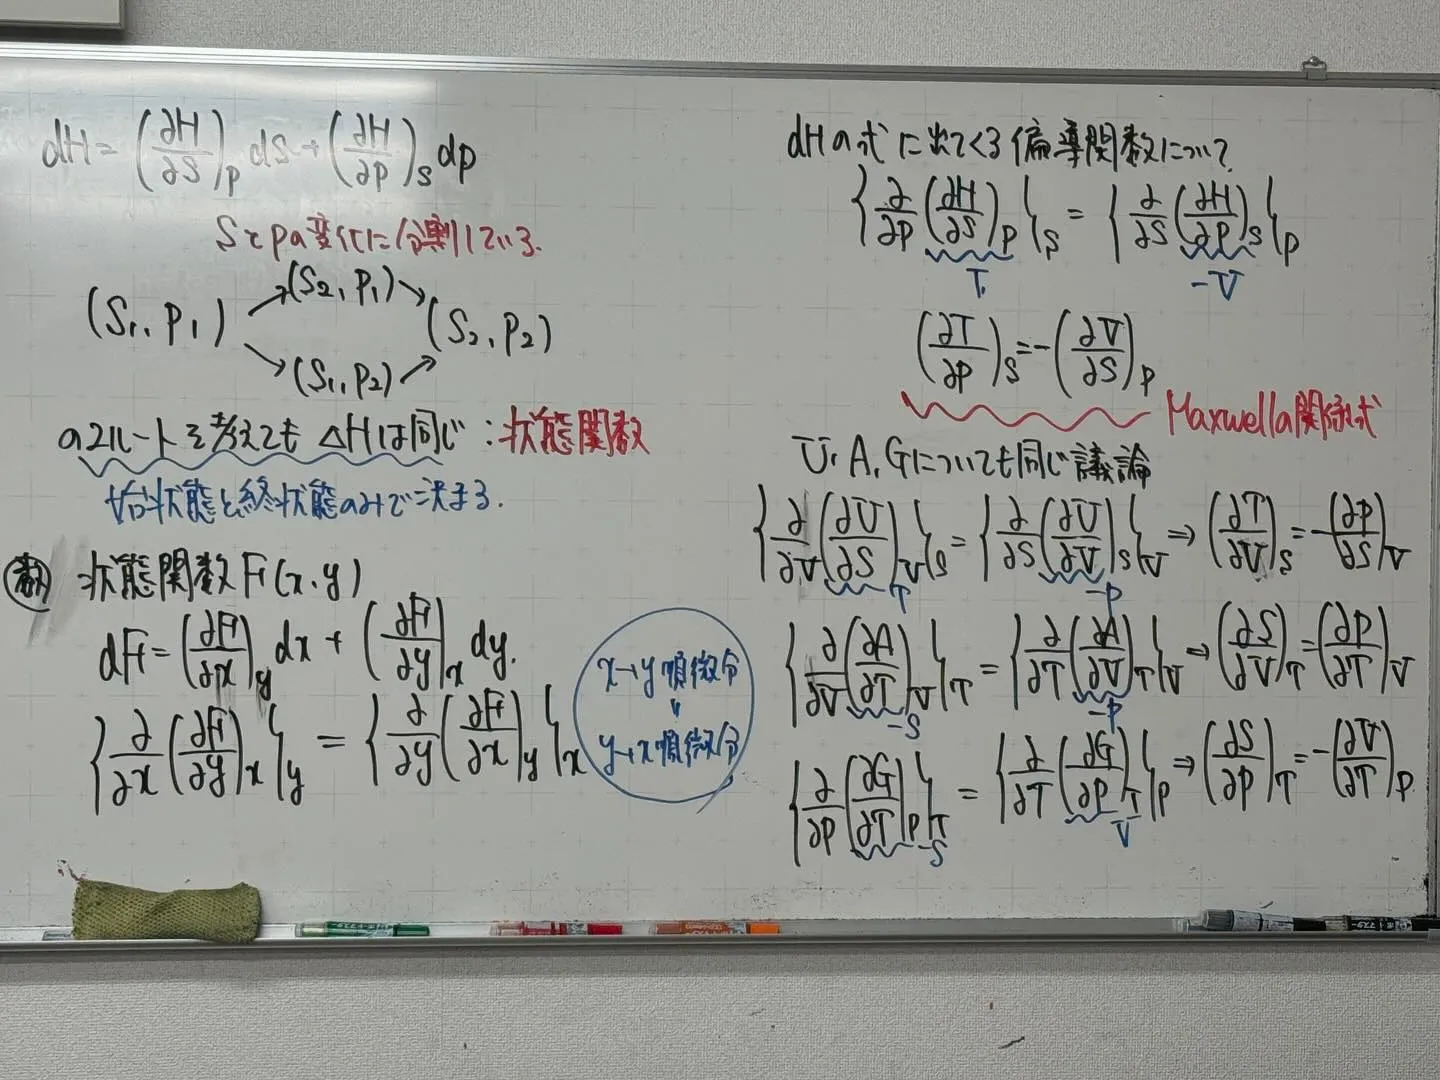 dH = (∂H/∂S)_P dS + (∂H/∂P)_S dp
SとPの変化に分割している.
(S₁, P₁) → (S₂, P₁) → (S₂, P₂)
→ (S₁, P₂) →
の2ルートを考えても ΔHは同じ : 状態関数
始状態と終状態のみで決まる.
数 状態関数 F(x, y)
dF = (∂F/∂x)_y dx + (∂F/∂y)_x dy.
{∂/∂x (∂F/∂y)_x}_y = {∂/∂y (∂F/∂x)_y}_x
x→y順微分
y→x順微分
dHの式に出てくる偏導関数について
{∂/∂P (∂H/∂S)_P}_S = {∂/∂S (∂H/∂P)_S}_P
T. -V
(∂T/∂P)_S = -(∂V/∂S)_P
Maxwellの関係式
U, A, Gについても同じ議論
{∂/∂V (∂U/∂S)_V}_S = {∂/∂S (∂U/∂V)_S}_V ⇒ (∂T/∂V)_S = -(∂P/∂S)_V
T -P
{∂/∂V (∂A/∂T)_V}_T = {∂/∂T (∂A/∂V)_T}_V ⇒ (∂S/∂V)_T = (∂P/∂T)_V
-S -P
{∂/∂P (∂G/∂T)_P}_T = {∂/∂T (∂G/∂P)_T}_P ⇒ (∂S/∂P)_T = -(∂V/∂T)_P
-S V